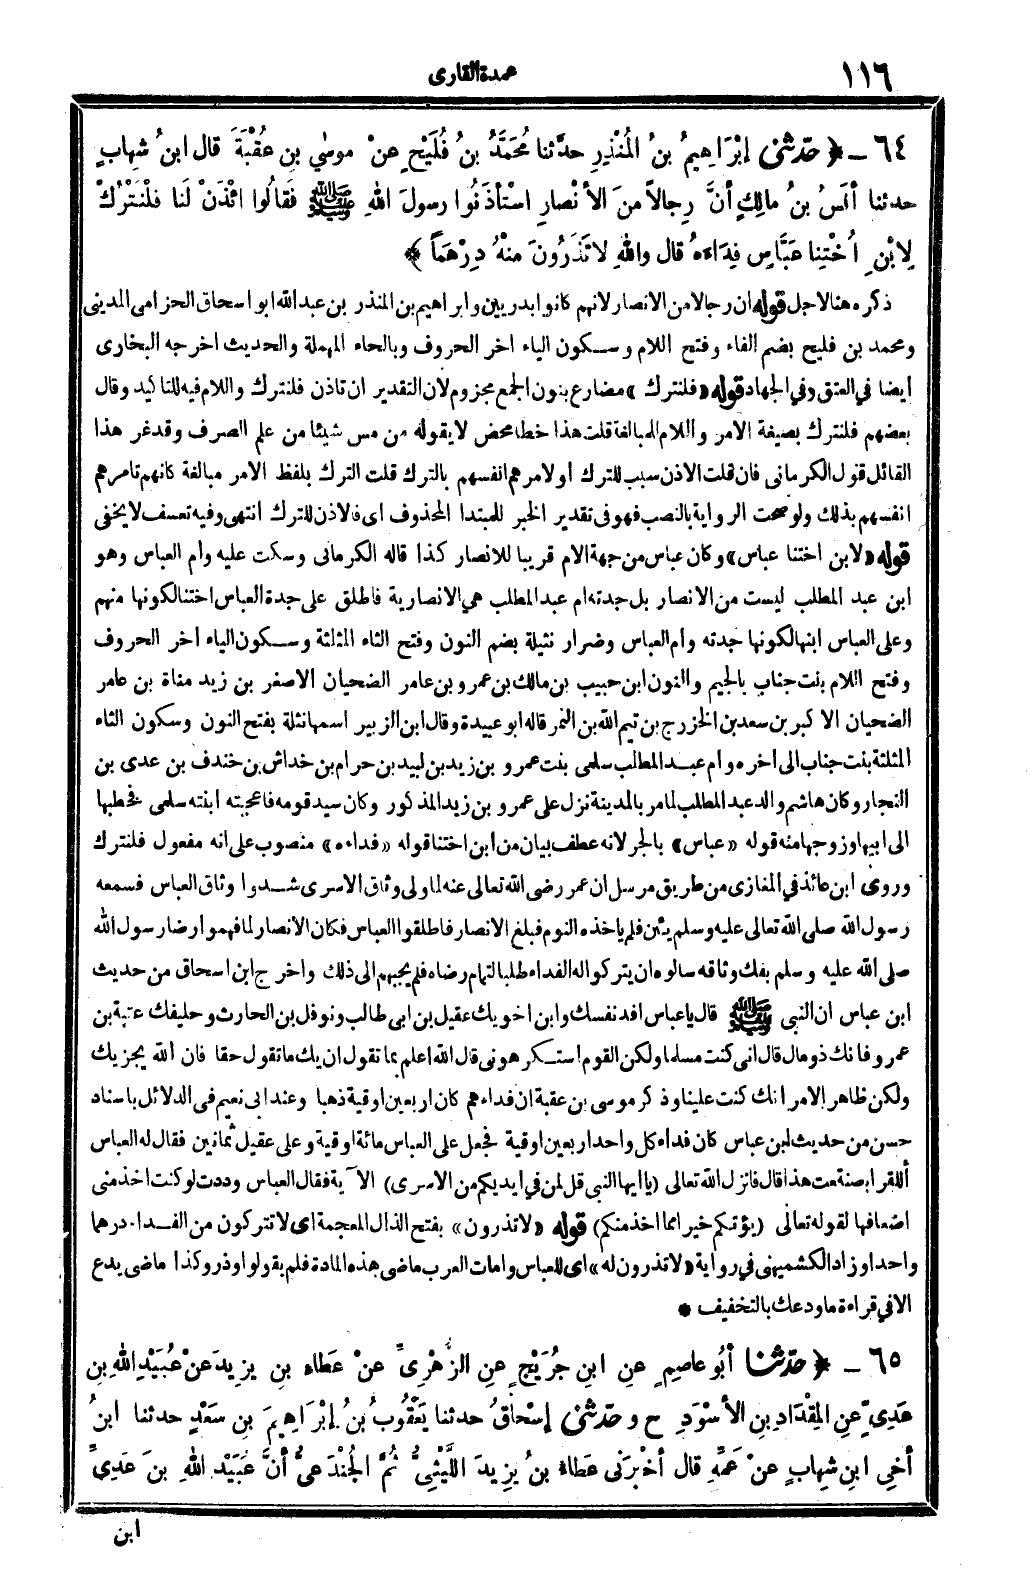 ١١٦
عمدة القارى
٦٤ - ﴿ حدَّثني إبْرَاهِيمُ بنُ المُنْذِرِ حدَّثنا مُحَمَّدُ بنُ فُلَيْحٍ عنْ موسٰي بنِ عُقْبَةَ قال ابنُ شِهابٍ
حدثنا أنَسُ بنُ مالِكٍ أنَّ رِجالاً منَ الأ نْصارِ اسْتأذَنُوا رسولَ اللهِ ﷺ فَقالُوا ائْذَنْ لَنا فلْنَتْرُكْ
لِابْنِ اُخْتِنا عَبَّاسٍ فِدَاءَهُ قال واللهِ لاتَذَرُونَ منْهُ دِرْهَماً ﴾
ذكره هنالاجل قوله ان رجالا من الانصار لانهم كانوا بدريين وابراهيم بن المنذر بن عبدالله ابو اسحاق الحزامى المدينى
ومحمد بن فليح بضم الفاء وفتح اللام وسكون الياء اخر الحروف وبالحاء المهملة والحديث اخرجه البخارى
أيضا في العتق وفي الجهاد قوله «فلنترك» مضارع بنون الجمع مجزوم لان التقدير ان تاذن فلنترك واللام فيه للتاكيد وقال
بعضهم فلنترك بصيغة الامر واللام للمبالغة قلت هذا خطا محض لا يقوله من مس شيئا من علم الصرف وقد غر هذا
القائل قول الكرمانى فان قلت الاذن سبب للترك أو لامرهم انفسهم بالترك قلت الترك بلفظ الامر مبالغة كانهم تامرهم
انفسهم بذلك ولو صحت الرواية بالنصب فهو فى تقدير الخبر للمبتدا المحذوف اى فالاذن للترك انتهى وفيه تعسف لايخفى
قوله «لابن اختنا عباس» وكان عباس من جهة الام قريبا للانصار كذا قاله الكرمانى وسكت عليه وام العباس وهو
ابن عبد المطلب ليست من الانصار بل جدته ام عبد المطلب هي الانصارية فاطلق على جدة العباس اختنا لكونها منهم
وعلى العباس ابنها لكونها جدته وام العباس وضرار نثيلة بضم النون وفتح الثاء المثلثة وسكون الياء اخر الحروف
وفتح اللام بنت جناب بالجيم والنون ابن حبيب بن مالك بن عمرو بن عامر الضحيان الاصغر بن زيد مناة بن عامر
الضحيان الاكبر بن سعد بن الخزرج بن تيم الله بن النمر قاله ابو عبيدة وقال ابن الزبير اسمها نثلة بفتح النون وسكون الثاء
المثلثة بنت جناب الى اخره وام عبد المطالب سلمى بنت عمرو بن زيد بن لبيد بن حرام بن خداش بن خندف بن عدى بن
النجار وكان هاشم والد عبد المطلب لما مر بالمدينة نزل على عمرو بن زيد المذكور وكان سيد قومه فاعجبته ابنته سلمى فخطبها
الى ابيها وزوجها منه قوله «عباس» بالجر لانه عطف بيان من ابن اختنا قوله «فداءه» منصوب على انه مفعول فلنترك
وروى ابن عائذ في المغازى من طريق مرسل ان عمر رضى الله تعالى عنه لما ولى وثاق الاسرى شدوا وثاق العباس فسمعه
رسول الله صلى الله تعالى عليه وسلم يئن فلم ياخذه النوم فبلغ الانصار فاطلقوا العباس فكان الانصار لما فهموا رضا رسول الله
صلى الله عليه وسلم بفك وثاقه سالوه ان يتركوا له الفداء طلبا لتمام رضاه فلم يجبهم الى ذلك واخرج ابن اسحاق من حديث
ابن عباس ان النبى ﷺ قال ياعباس افد نفسك وابن اخويك عقيل بن ابى طالب ونوفل بن الحارث وحليفك عتبة بن
عمرو فانك ذو مال قال انى كنت مسلما ولكن القوم استكرهونى قال الله اعلم بما تقول ان يك ما تقول حقا فان الله يجزيك
ولكن ظاهر الامر انك كنت علينا وذكر موسى بن عقبة ان فداءهم كان اربعين اوقية ذهبا وعند ابى نعيم فى الدلائل باسناد
حسن من حديث ابن عباس كان فداء كل واحد اربعين اوقية فجعل على العباس مائة اوقية وعلى عقيل ثمانين فقال له العباس
أللقرابة صنعت هذا قال فانزل الله تعالى (يا ايها النبى قل لمن في ايديكم من الاسرى) الآية فقال العباس وددت لو كنت اخذ منى
اضعافها لقوله تعالى (يؤتكم خيرا مما اخذ منكم) قوله «لاتذرون» بفتح الذال المعجمة اى لا تتركون من الفداء درهما
واحدا وزاد الكشميهنى في رواية «لاتذرون له» اى للعباس وامات العرب ماضى هذه المادة فلم يقولوا وذر وكذا ماضى يدع
الا في قراءة ما ودعك بالتخفيف *
٦٥ - ﴿ حدَّثنا أبُو عاصِمٍ عنِ ابنِ جُرَيْجٍ عنِ الزُّهْرِىِّ عنْ عَطاءِ بنِ يزِيدَ عنْ عُبَيْدِ اللهِ بنِ
عَدِىٍّ عنِ المِقْدَادِ بنِ الأسْوَدِ ح وحدَّثني إسْحاقُ حدثنا يَعْقُوبُ بنُ إبْرَاهِيمَ بنِ سَعْدٍ حدثنا ابنُ
أخِي ابنِ شِهابٍ عنْ عَمِّهِ قال أخْبرَنى عَطاءُ بنُ يزِيدَ اللَّيْثِىُّ ثُمَّ الجُنْدَعِىُّ أنَّ عُبَيْدَ اللهِ بنَ عَدِىِّ
ابن